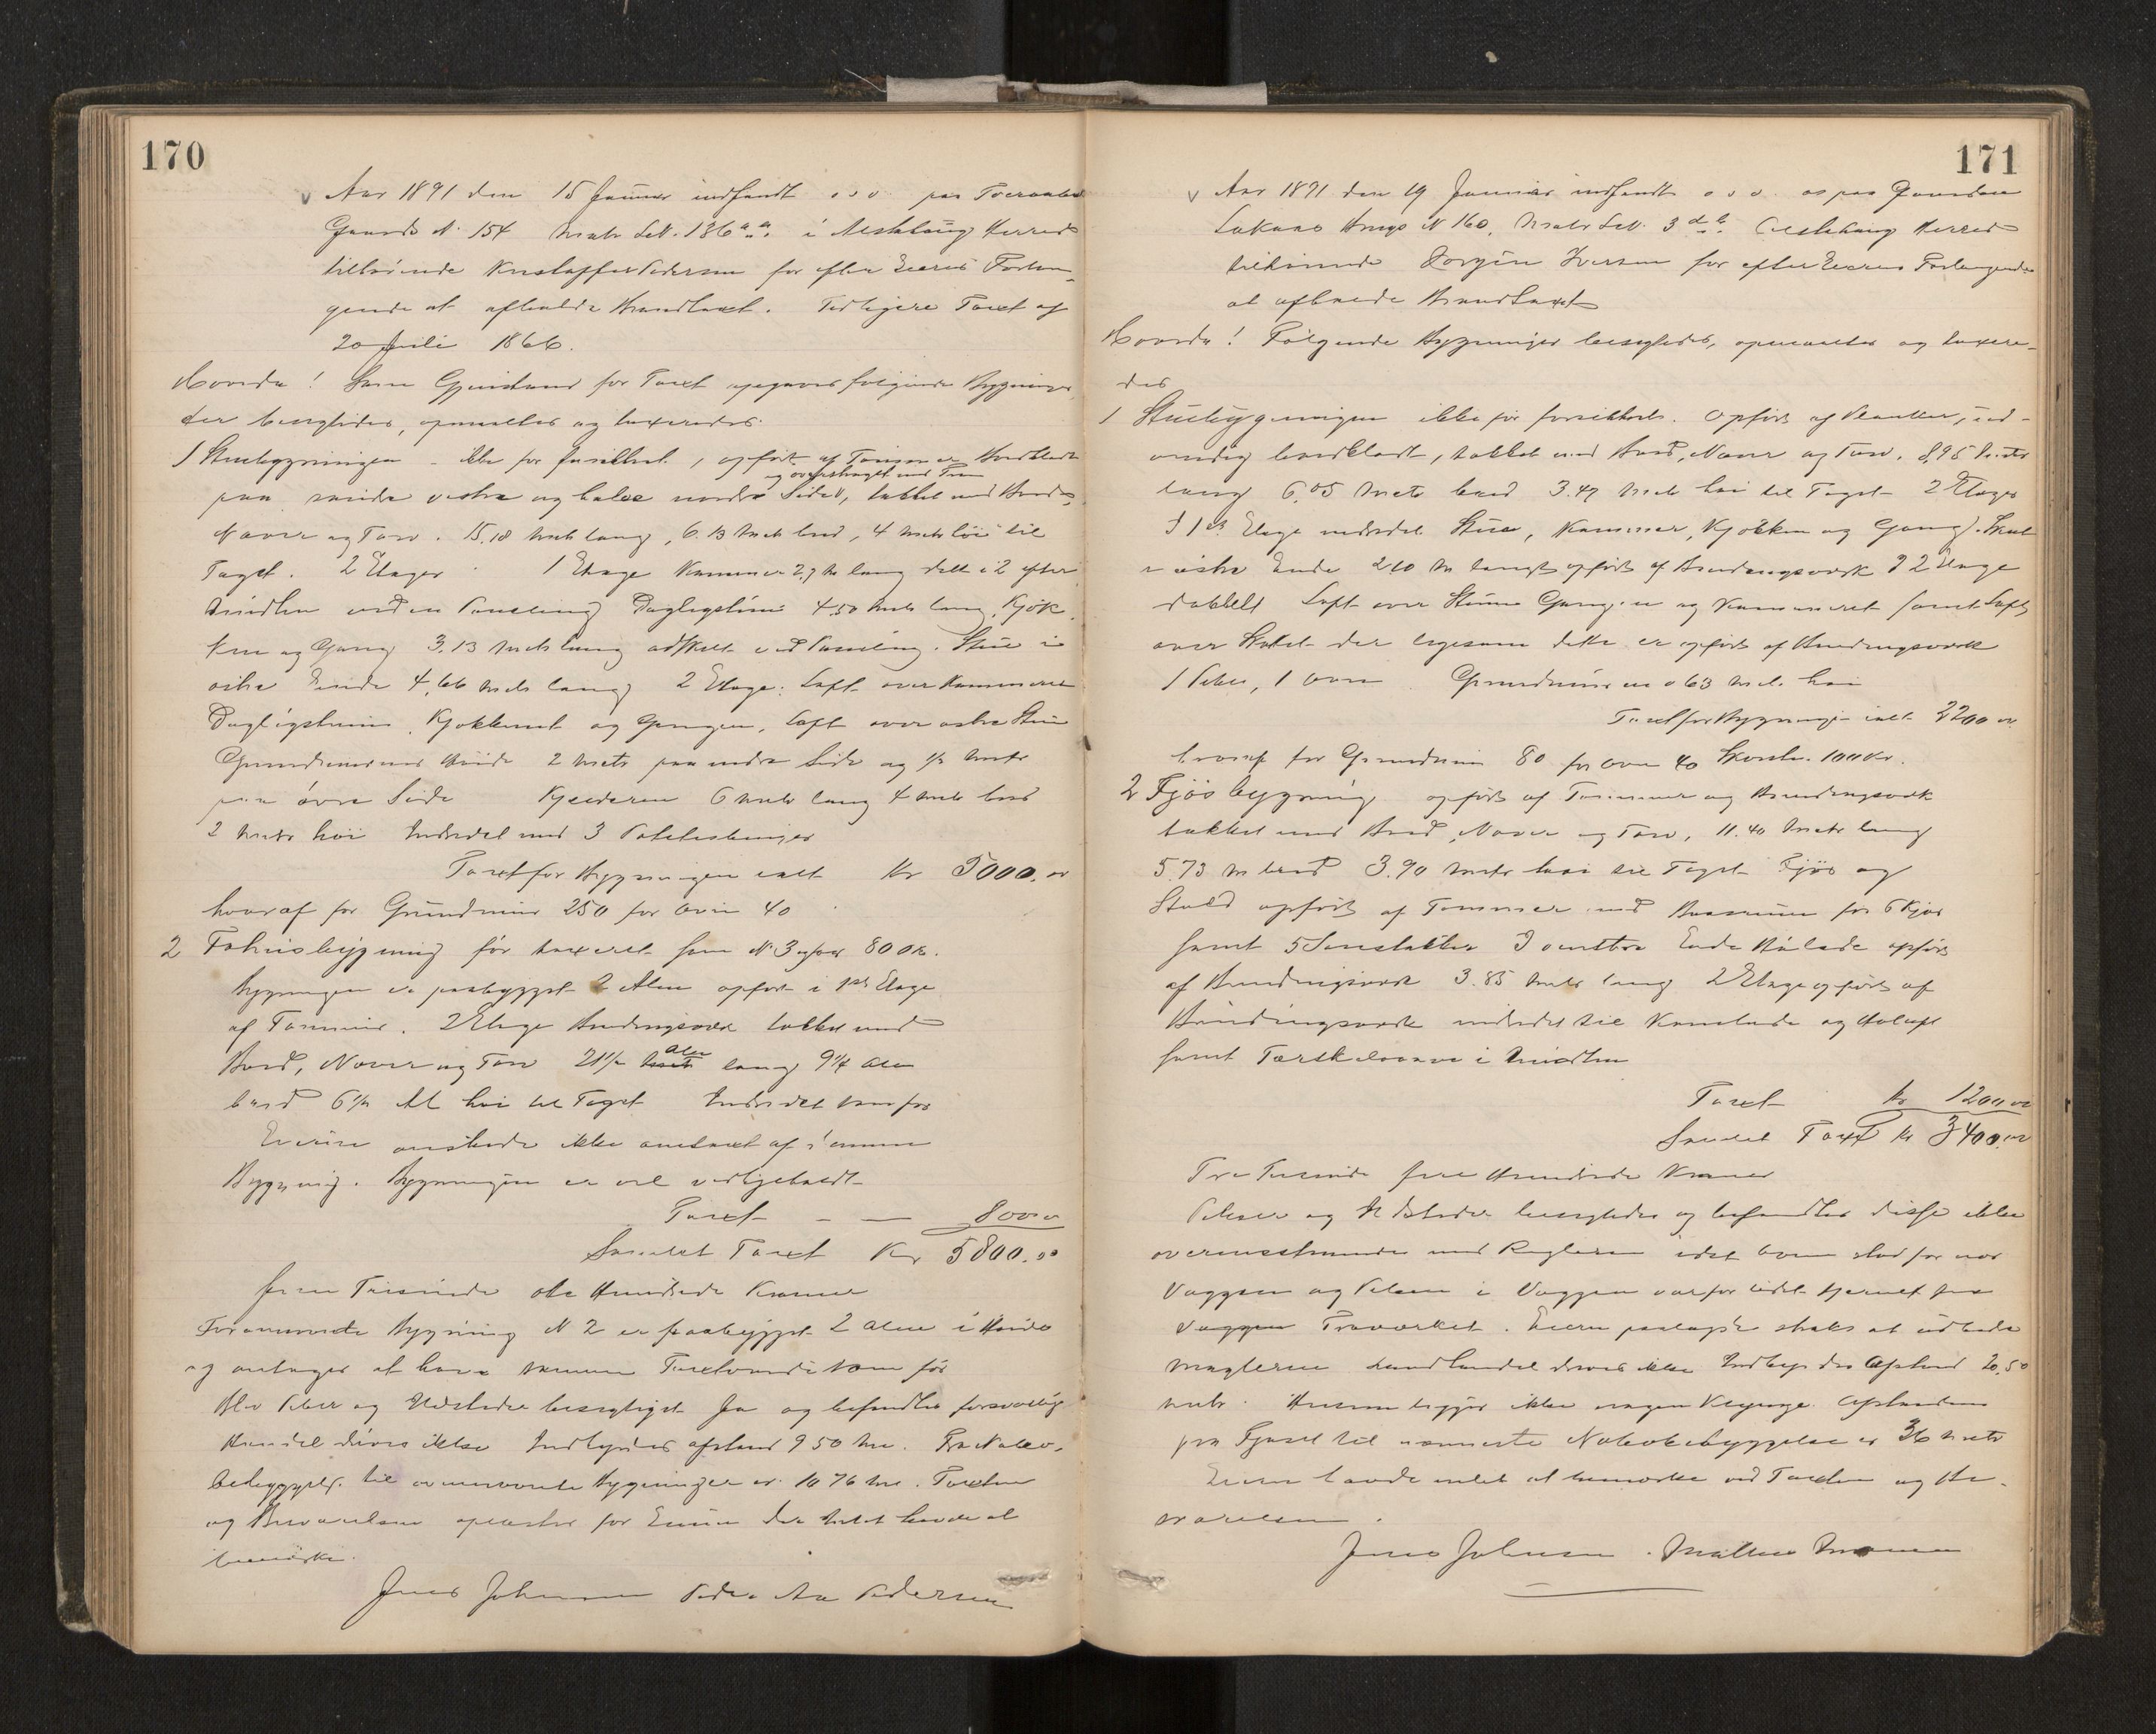 170
Aar 1891 den 15 Januar indfandt o s v paa
Gaards N. 154 Matr Lsb. 136 a.a. i Herred
tilhørende Kristoffer Pedersen for efter Eierens Forlan-
gende at afholde Brandtaxt. Tidligere Taxt af
20 Juli 1866.
Hvorda! Som Gjenstand for Taxt opgaves følgende Bygninger
der besigtedes, opmaaltes og taxeredes.
1 Stuebygningen - ikke før forsikkret, opført af Tømmer Bordklædt
og overstrøget med
paa søndre vestre og halve nordre Sider, takket med Bord,
Næver og Torv. 15.18 Metr lang, 6.13 Metr bred, 4 Metr høi til
Taget. 2 Etager 1 Etage Kammer 2,7 M lang delt i 2 efter
Midten ved en Paneling Dagligstue 4.50 Metr lang. Kjøk-
ken og Gang 3.13 Metr lang adskilt ved Paneling. Stue i
østre Ende 4,66 Metr lang 2 Etage: Loft over Kammeret
Dagligstuen, Kjøkkenet og Gangen, Loft over østre Stue
Grundmurens Høide 2 Metr paa nedre Side og ½ Metr
paa øvre Side Kjælderen 6 Metr lang 4 Metr bred
2 Metr høi Indredet med 3
Taxt for Bygningen ialt Kr 5000.00
hvoraf for Grundmur 250 for Ovn 40
2 Føhusbygning før taxeret som N 3 800 Kr.
Bygningen er paabygget 2 Alen opført i 1ste Etage
af Tømmer. 2 Etage Bindingsværk takket med
Bord, Næver og Torv 21½ Alen lang 9¼ Alen
bred 6½ Al høi til Taget Indredet som før
Eieren ønskede ikke omtaxt af samme
Bygning. Bygningen er vel vedligeholdt
Taxt - — 800.00
Samlet Taxt Kr 5800.00
fem Tusinde otte Hundrede Kroner
Forannævnte Bygning N 2 er paabygget 2 Alen i Høide
og antages at have samme Taxtværdi som før
Blev Piber og Ildsteder besigtiget Ja og befandtes forsvarlig
Handel drives ikke Indbyrdes afstand 9 50 Mr. Fra Nabo-
bebyggelse til overnævnte Bygninger er 10 76 Mr. Taxten
og Besvarelsen oplæstes for Eieren der Intet havde at
bemærke.
Jens Johnsen Peder Aa Pedersen
171
Aar 1891 den 19 Januar indfandt o s v os paa Gaarden
Bugs N 160. Matr Lsb. 3 Herred
tilhørende Jørgen Iversen for efter Eierens Forlangende
at afholde Brandtaxt
Hvorda! Følgende Bygninger besigtedes, opmaaltes og taxere-
des
1 Stuebygningen ikke før forsikkret. Opført af Planker, ud-
vendig bordklædt, takket med Bord, Næver og Torv. 8,95 Metr
lang 6,05 Metr bred 3.47 Metr høi til Taget 2 Etager
I 1ste Etage indredet Stue, Kammer, Kjøkken og Gang. Skut
i østre Ende 2 10 M langt opført af Bindingsværk I 2 Etage
dobbelt Loft over Stuen Gangen og Kammeret samt Loft
over Skutet der ligesom dette er opført af Bindingsværk
1 Pibe, 1 Ovn Grundmuren 0 63 Met. høi
Taxt for Bygningen ialt 2200 00
hvoraf for Grundmur 80 for Ovn 40 Skorsten 100 Kr.
2 Fjøsbygning opført af Tømmer og Bindingsværk
takket med Bord, Næver og Torv, 11.40 Metr lang
5.73 M bred 3.90 Metr høi til Taget Fjøs og
Stald opført af Tømmer med Baasrum for 6 Kjør
samt 5 I vestre Ende Hølade opført
af Bindingsværk 3.85 Metr lang 2 Etage opført af
Bindingsværk indredet til Kornlade og Høloft
samt Tærskelaave i Midten
Taxt Kr 1200 00
Samlet Taxt Kr 3400.00
Tre Tusinde fire Hundrede Kroner
Piber og Ildsteder besigtedes og befandtes disse ikke
overensstemmende med Reglerne idet Ovnen stod for nær
Væggen og Pibene i Væggen var for lidet fjernet fra
Væggen Træværket. Eieren paalagdes straks at udbedre
Manglerne Landhandel drives ikke Indbyrdes Afstand 20,50
Metr. Husene ligger ikke nogen Klynge. Afstanden
fra Fjøset til nærmeste Nabobebyggelse er 36 Metr
Eieren havde intet at bemærke ved Taxten og Be-
svarelsen.
Jens Johnsen. Monsen